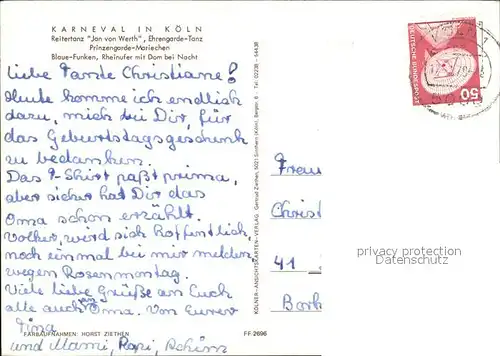 KARNEVAL IN KÖLN
Reitertanz "Jan von Werth", Ehrengarde-Tanz
Prinzengarde-Mariechen
Blaue-Funken, Rheinufer mit Dom bei Nacht
Liebe Tante Christiane!
Heute komme ich endlich
dazu, mich bei Dir, für
das Geburtstagsgeschenk
zu bedanken.
Das T-Shirt paßt prima,
aber sicher hat Dir das
Oma schon erzählt.
Volker, wird sich hoffentlich,
noch einmal bei mir melden
wegen Rosenmontag.
Viele liebe Grüße an Euch
alle auch an Oma. Von Eurer
Tina
und Mami, Papi,
FARBAUFNAHMEN: HORST ZIETHEN
FF 2696
KÖLNER-ANSICHTSKARTEN-VERLAG Gertrud Ziethen, 5021 Sinthern (Köln), Bergstr. 6 Tel. 02238 - 54438
DEUTSCHE BUNDESPOST
50
Frau
Christ
41
Bork
privacy protection
Datenschutz